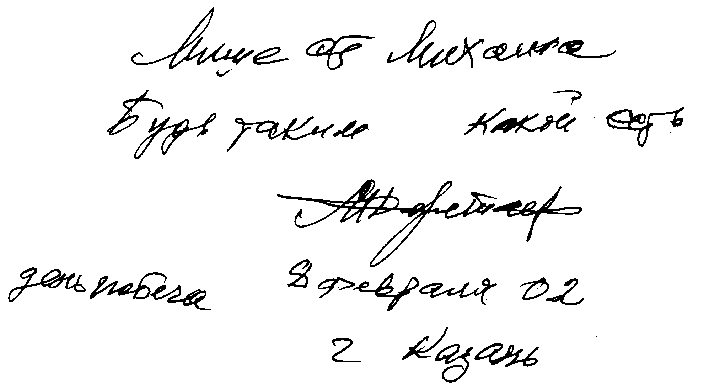 Мише от Михаила
Будь таким какой есть
день побега 8 февраля 02
г Казань